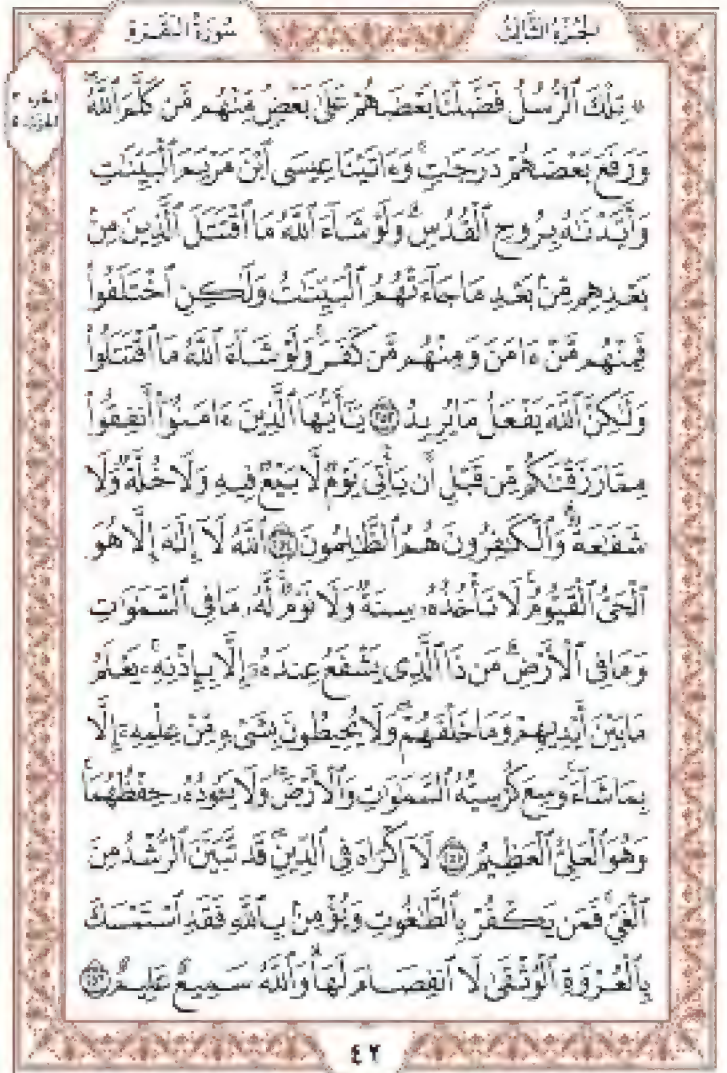 سُورَةُ البَقَرَةِ
الجُزْءُ الثَّالِثُ
۞ تِلْكَ ٱلرُّسُلُ فَضَّلْنَا بَعْضَهُمْ عَلَىٰ بَعْضٍ مِّنْهُم مَّن كَلَّمَ ٱللَّهُ
وَرَفَعَ بَعْضَهُمْ دَرَجَٰتٍ وَءَاتَيْنَا عِيسَى ٱبْنَ مَرْيَمَ ٱلْبَيِّنَٰتِ
وَأَيَّدْنَٰهُ بِرُوحِ ٱلْقُدُسِ وَلَوْ شَآءَ ٱللَّهُ مَا ٱقْتَتَلَ ٱلَّذِينَ مِنۢ
بَعْدِهِم مِّنۢ بَعْدِ مَا جَآءَتْهُمُ ٱلْبَيِّنَٰتُ وَلَٰكِنِ ٱخْتَلَفُوا۟
فَمِنْهُم مَّنْ ءَامَنَ وَمِنْهُم مَّن كَفَرَ وَلَوْ شَآءَ ٱللَّهُ مَا ٱقْتَتَلُوا۟
وَلَٰكِنَّ ٱللَّهَ يَفْعَلُ مَا يُرِيدُ ٢٥٣ يَٰٓأَيُّهَا ٱلَّذِينَ ءَامَنُوٓا۟ أَنفِقُوا۟
مِمَّا رَزَقْنَٰكُم مِّن قَبْلِ أَن يَأْتِىَ يَوْمٌ لَّا بَيْعٌ فِيهِ وَلَا خُلَّةٌ وَلَا
شَفَٰعَةٌ وَٱلْكَٰفِرُونَ هُمُ ٱلظَّٰلِمُونَ ٢٥٤ ٱللَّهُ لَآ إِلَٰهَ إِلَّا هُوَ
ٱلْحَىُّ ٱلْقَيُّومُ لَا تَأْخُذُهُۥ سِنَةٌ وَلَا نَوْمٌ لَّهُۥ مَا فِى ٱلسَّمَٰوَٰتِ
وَمَا فِى ٱلْأَرْضِ مَن ذَا ٱلَّذِى يَشْفَعُ عِندَهُۥٓ إِلَّا بِإِذْنِهِۦ يَعْلَمُ
مَا بَيْنَ أَيْدِيهِمْ وَمَا خَلْفَهُمْ وَلَا يُحِيطُونَ بِشَىْءٍ مِّنْ عِلْمِهِۦٓ إِلَّا
بِمَا شَآءَ وَسِعَ كُرْسِيُّهُ ٱلسَّمَٰوَٰتِ وَٱلْأَرْضَ وَلَا يَـُٔودُهُۥ حِفْظُهُمَا
وَهُوَ ٱلْعَلِىُّ ٱلْعَظِيمُ ٢٥٥ لَآ إِكْرَاهَ فِى ٱلدِّينِ قَد تَّبَيَّنَ ٱلرُّشْدُ مِنَ
ٱلْغَىِّ فَمَن يَكْفُرْ بِٱلطَّٰغُوتِ وَيُؤْمِنۢ بِٱللَّهِ فَقَدِ ٱسْتَمْسَكَ
بِٱلْعُرْوَةِ ٱلْوُثْقَىٰ لَا ٱنفِصَامَ لَهَا وَٱللَّهُ سَمِيعٌ عَلِيمٌ ٢٥٦
٤٢